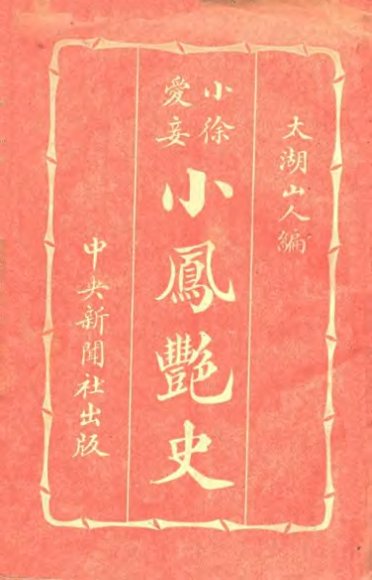 太湖山人編
小徐
愛妾
小鳳艷史
中央新聞社出版